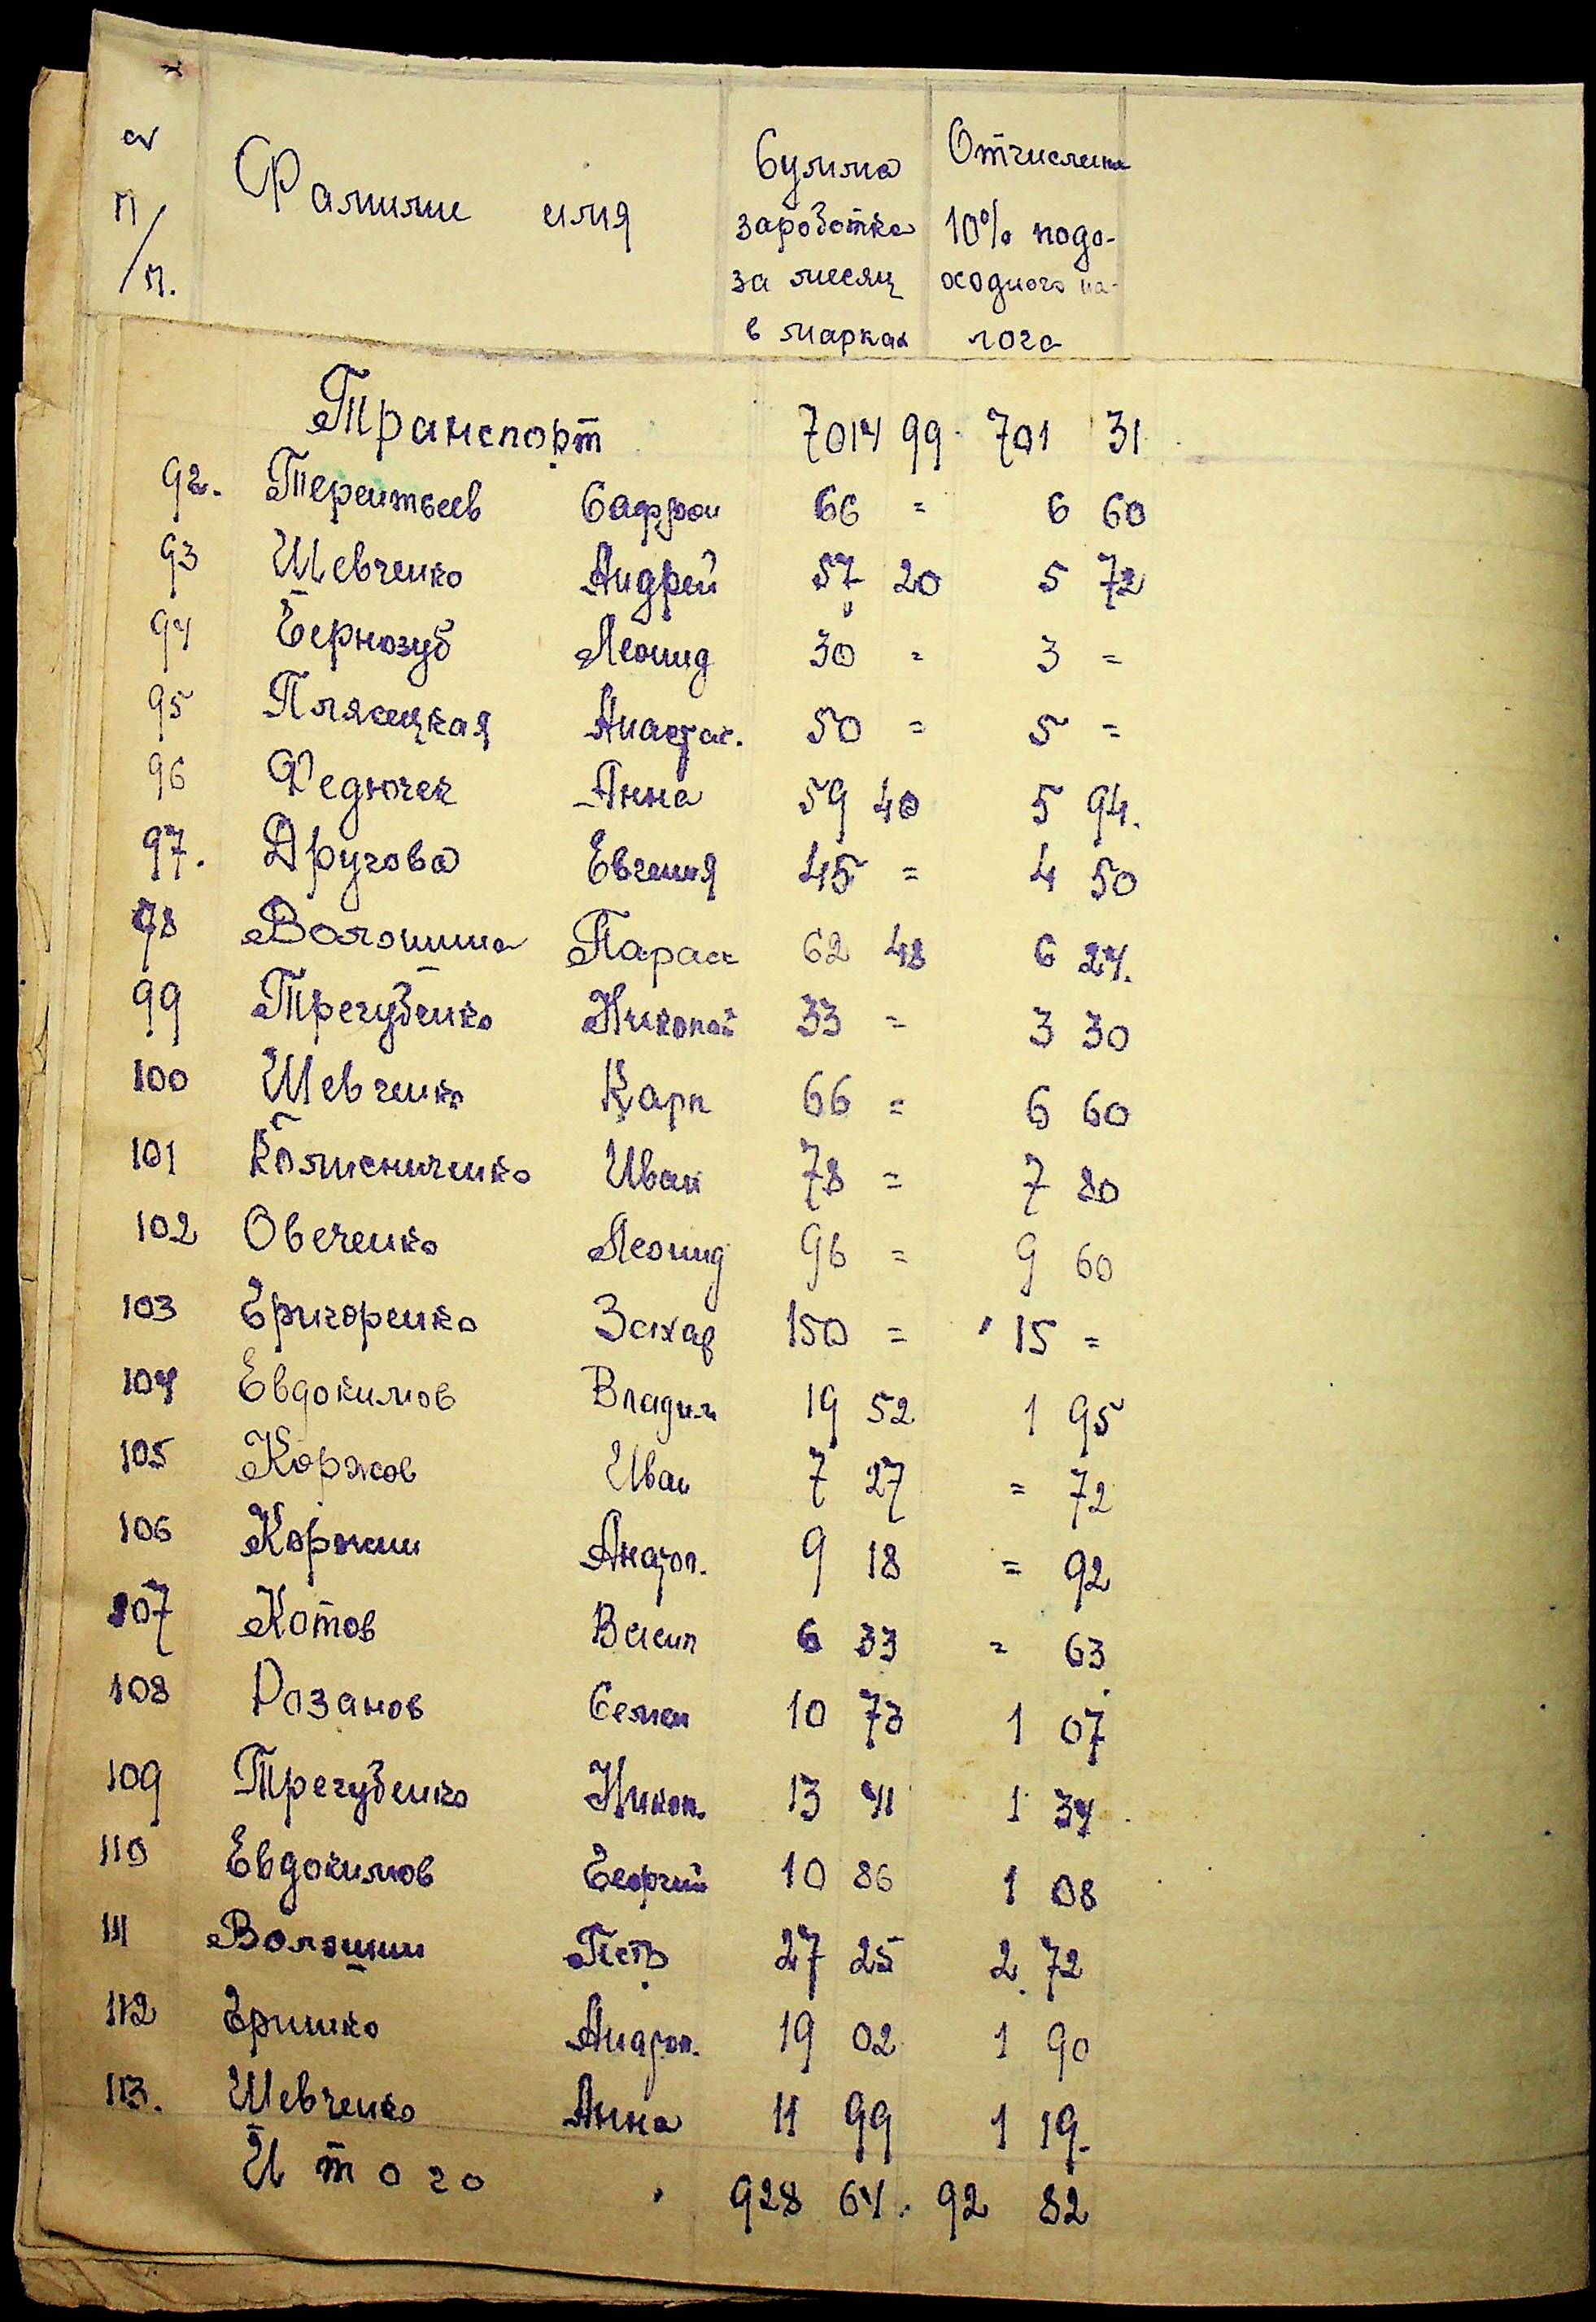 № п/п. Фамилие имя Сумма заработка за месяц в марках Отчисления 10% подоходного налога
Транспорт 7014 99 701 31
92. Терентьев Сафрон 66 = 6 60
93 Шевченко Андрей 57 20 5 72
94 Чернозуб Леонид 30 = 3 =
95 Плясецкая Анастас. 50 = 5 =
96 Федючек Анна 59 40 5 94.
97. Другова Евгения 45 = 4 50
98 Волошина Параск 62 48 6 24.
99 Трегубенко Николай 33 = 3 30
100 Шевченко Карп 66 = 6 60
101 Колисниченко Иван 78 = 7 80
102 Овченко Леонид 96 = 9 60
103 Григоренко Захар 150 = 15 =
104 Евдокимов Владим 19 52 1 95
105 Коржов Иван 7 27 = 72
106 Коржин Анатол. 9 18 = 92
107 Котов Васил 6 33 = 63
108 Розанов Семен 10 73 1 07
109 Трегубенко Никол. 13 41 1 34
110 Евдокимов Георгий 10 86 1 08
111 Волошин Петр 27 25 2 72
112 Гришко Анатол. 19 02 1 90
113. Шевченко Анна 11 99 1 19.
Итого 928 64. 92 82